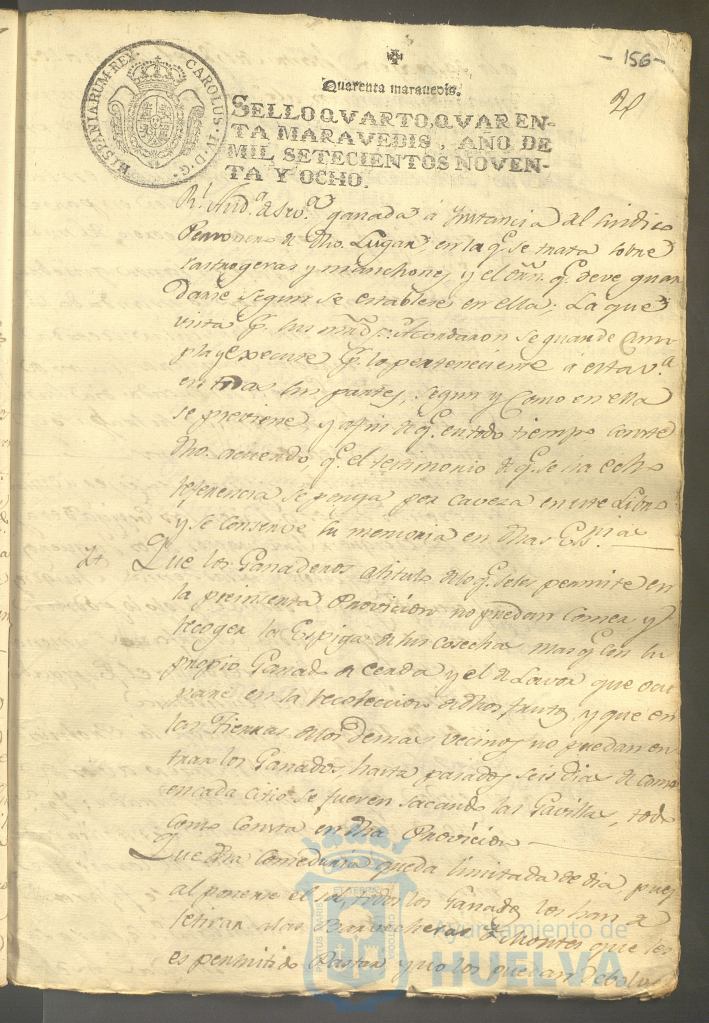 -156-
Quarenta maravedis.
20
HISPANIARUM REX CAROLUS IV D. G.
SELLO QVARTO, QVAREN-
TA MARAVEDIS, AÑO DE
MIL SETECIENTOS NOVEN-
TA Y OCHO.
Rl. Aud.a de Sev.a ganada á Instancia del Sindico
Personero de dho. Lugar, en la q.e se trata sobre
rastrogeras y manchones, y el orn. q.e deve guar
darse segun se establese en ella: La que
vista p.r sus mrd.s Acordaron se guarde Cum
pla y Execute p.r lo perteneciente á esta v.a
en todas sus partes, segun y como en ella
se previene, y afin de q.e en todo tiempo conste
dho. acuerdo q.e el testimonio de q.e se ha echo
referencia se ponga por caveza en este Libro
y se conserve su memoria en dhas
Que los Ganaderos atitulo de lo q.e se les permite en
la preinserta Provicion no puedan comer y
recoger la Espiga de sus cosechas mas q.e con su
propio Ganado de cerda y el de Lavor que ocu
pare en la recoleccion de dhos. frutos, y que en
las Tierras de los demas vecinos no puedan en
trar los Ganados, hasta pasados seis dias de como
en cada citio se fueren sacando las Gavillas, todo
como consta en dha Provicion
Que dha comeduria queda limitada de dia, pues
al ponerse el sol, todos los Ganados los han de
retirar alas Barvecheras y Montes que les
es permitido Pastar y no los puedan
PORTUS MARIS ET TERRAE CUSTODIA
Ayuntamiento de
HUELVA